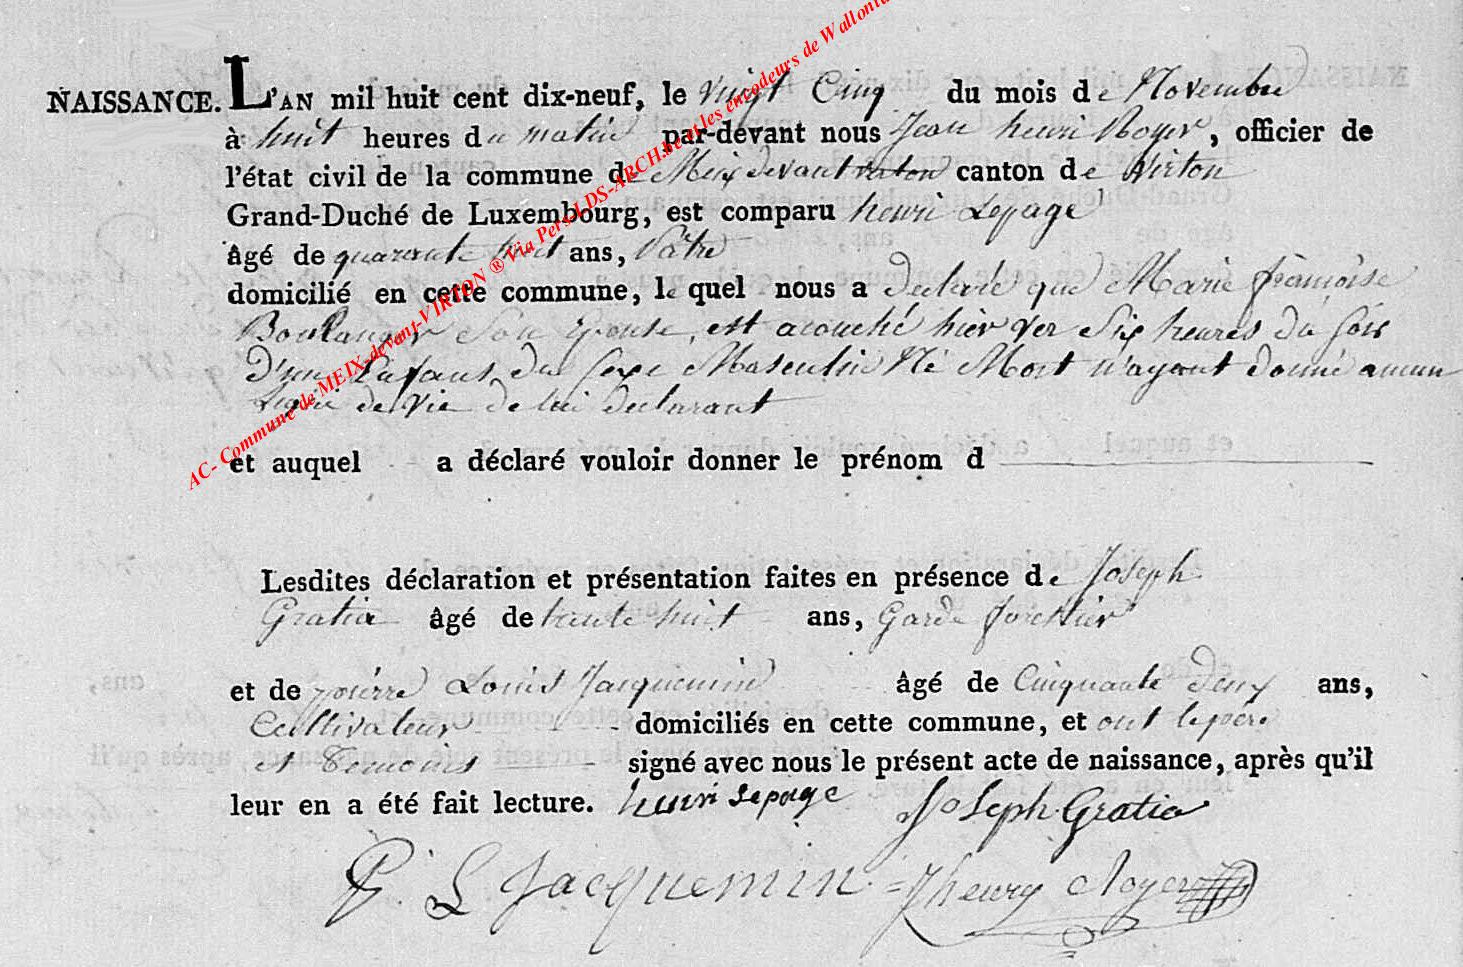 NAISSANCE. L'AN mil huit cent dix-neuf, le vingt Cinq du mois de Novembre
à huit heures du matin par-devant nous Jean henri Royer, officier de
l'état civil de la commune de Meix devant virton canton de Virton
Grand-Duché de Luxembourg, est comparu henri Lepage
âgé de quarante huit ans, Pâtre
domicilié en cette commune, le quel nous a declaré que Marie françoise
Boulanger Son Epouse, est acouché hier ver Six heures du Soir
D'un Enfant du Sexe Masculin Né Mort n'ayant donné aucun
Signe de vie de lui declarant
et auquel a déclaré vouloir donner le prénom d
Lesdites déclaration et présentation faites en présence de Joseph
Gratia âgé de trente huit ans, Garde forestier
et de pierre Louis Jacquemin âgé de Cinquante Deux ans,
Cultivateur domiciliés en cette commune, et ont le père
et Temoins signé avec nous le présent acte de naissance, après qu'il
leur en a été fait lecture. henri Lepage Joseph Gratia
P. L Jacquemin Jhenry Royer
AC- Commune de MEIX-devant-VIRTON ® Via Pers LDS-ARCH.be et les encodeurs de Wallonie